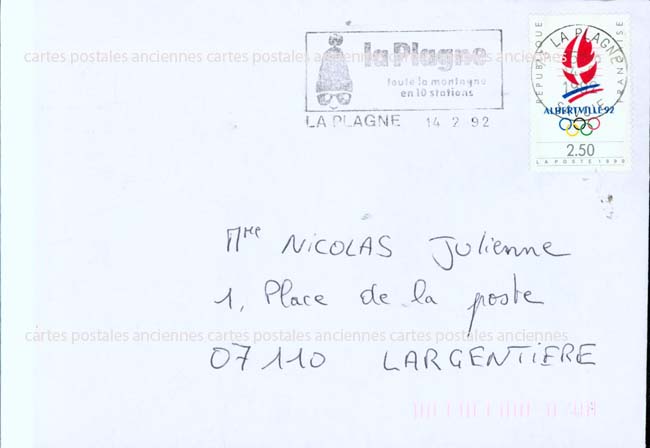 cartes postales anciennes cartes postales anciennes cartes postales anciennes cartes postales anciennes
la Plagne
toute la montagne
en 10 stations
LA PLAGNE 14 2 92
LA PLAGNE
SAVOIE
RÉPUBLIQUE FRANÇAISE
ALBERTVILLE 92
2.50
LA POSTE 1990
Mme NICOLAS Julienne
1, Place de la poste
cartes postales anciennes cartes postales anciennes cartes postales anciennes
07110 LARGENTIERE